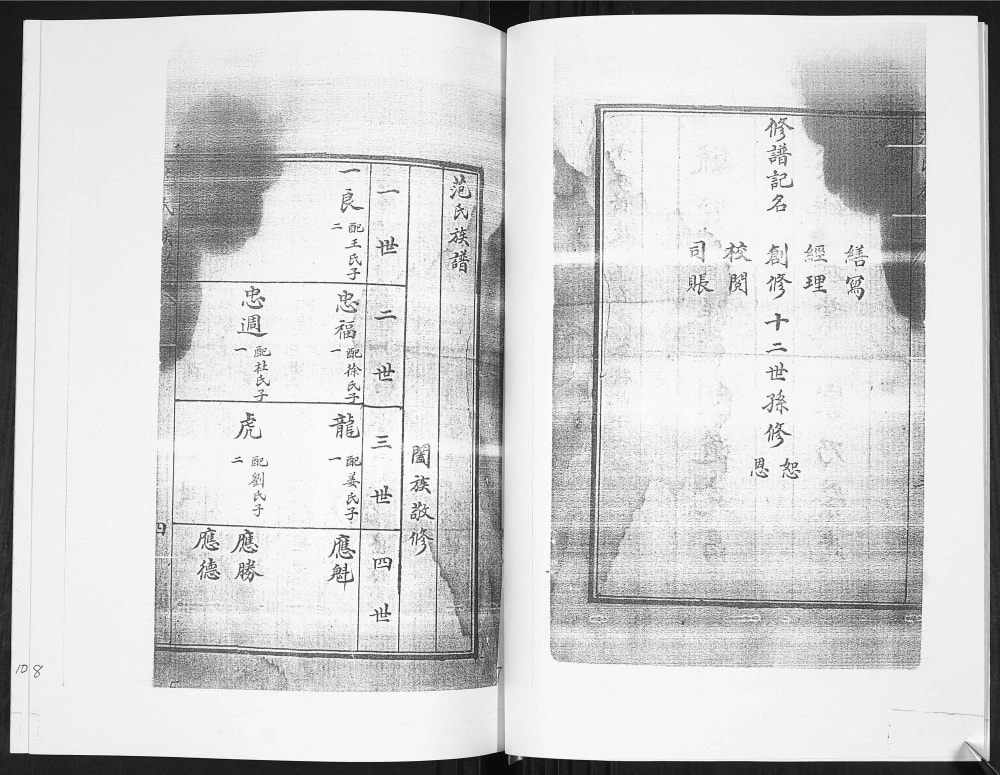 修譜記名
繕寫
經理
創修十二世孫修恕恩
校閱
司賬
范氏族譜
闔族敬修
一世
二世
三世
四世
一良 配王氏子二
忠福 配徐氏子一
忠週 配杜氏子一
龍 配姜氏子一
虎 配劉氏子二
應魁
應勝
應德
四
108